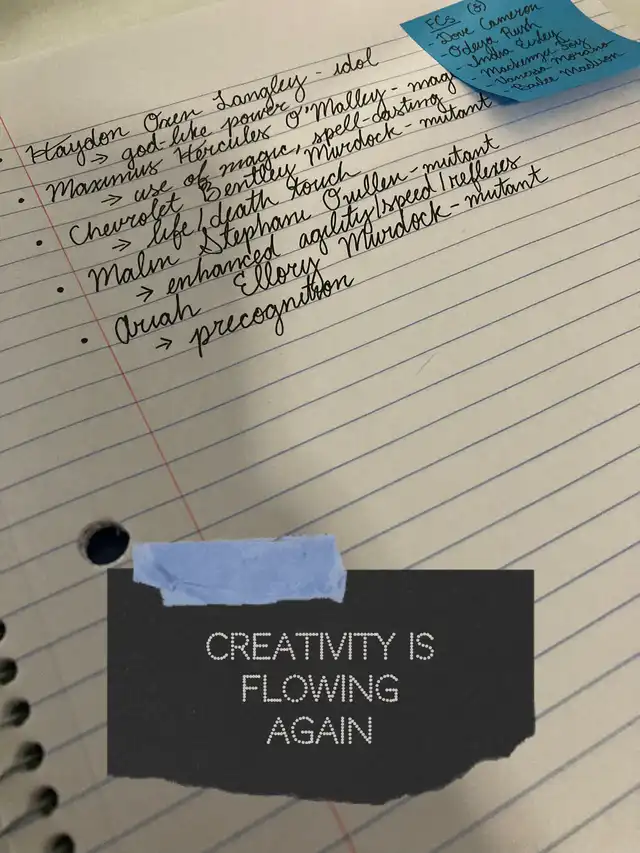 FCs (8)
- Dove Cameron
- Odeya Rush
- India Eisley
- Mackenzie Foy
- Vanessa Moraino
- Bailee Madison
• Haydon Oxen Langley - idol
→ god-like power
• Maximus Hercules O'Malley - mag
→ use of magic, spell-casting
• Chevrolet Bentley Murdock - mutant
→ life/death touch
• Malin Stephane Quillen - mutant
→ enhanced agility/speed/reflexes
• Ariah Ellory Murdock - mutant
→ precognition
CREATIVITY IS
FLOWING
AGAIN